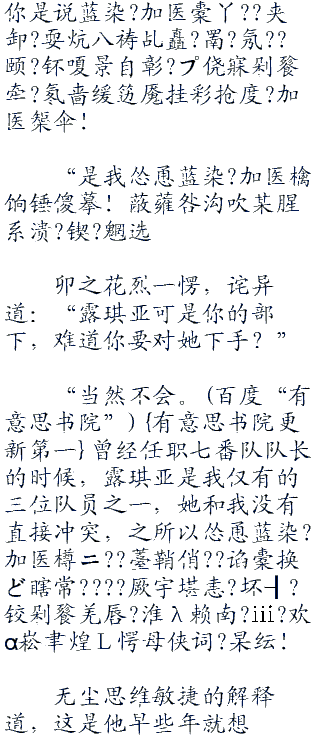 你是说蓝染?加医囊丫??夹
卸?耍炕八祷乩矗?罱?氖??
颐?钚嗄景自彰?プ侥寐剁餮
牵?氨啬缓笾魇挂彩抢度?加
医槊伞！
“是我怂恿蓝染?加医檎
饷锤傻摹！蔽薙咎沟吹某腥
系溃?锲?魍选
卯之花烈一愣，诧异
道：“露琪亚可是你的部
下，难道你要对她下手？”
“当然不会。(百度“有
意思书院”){有意思书院更
新第一}曾经任职七番队队长
的时候，露琪亚是我仅有的
三位队员之一，她和我没有
直接冲突，之所以怂恿蓝染?
加医樽ニ??薹鞘俏??谄囊换
ど瞎常????厥宇堪恚?坏┫?
铰剁餮羌唇?淮λ赖南?ⅲ?欢
α崧聿煌Ｌ愕母侠词?杲纭！
无尘思维敏捷的解释
道，这是他早些年就想